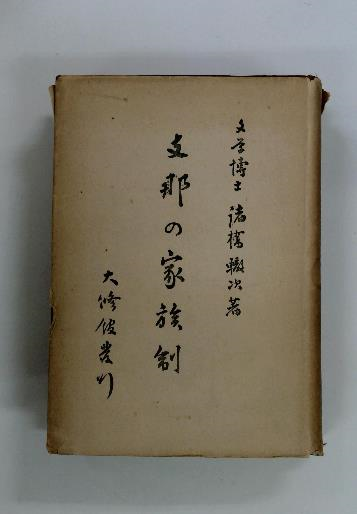 文学博士 諸橋轍次著
支那の家族制
大修館発行